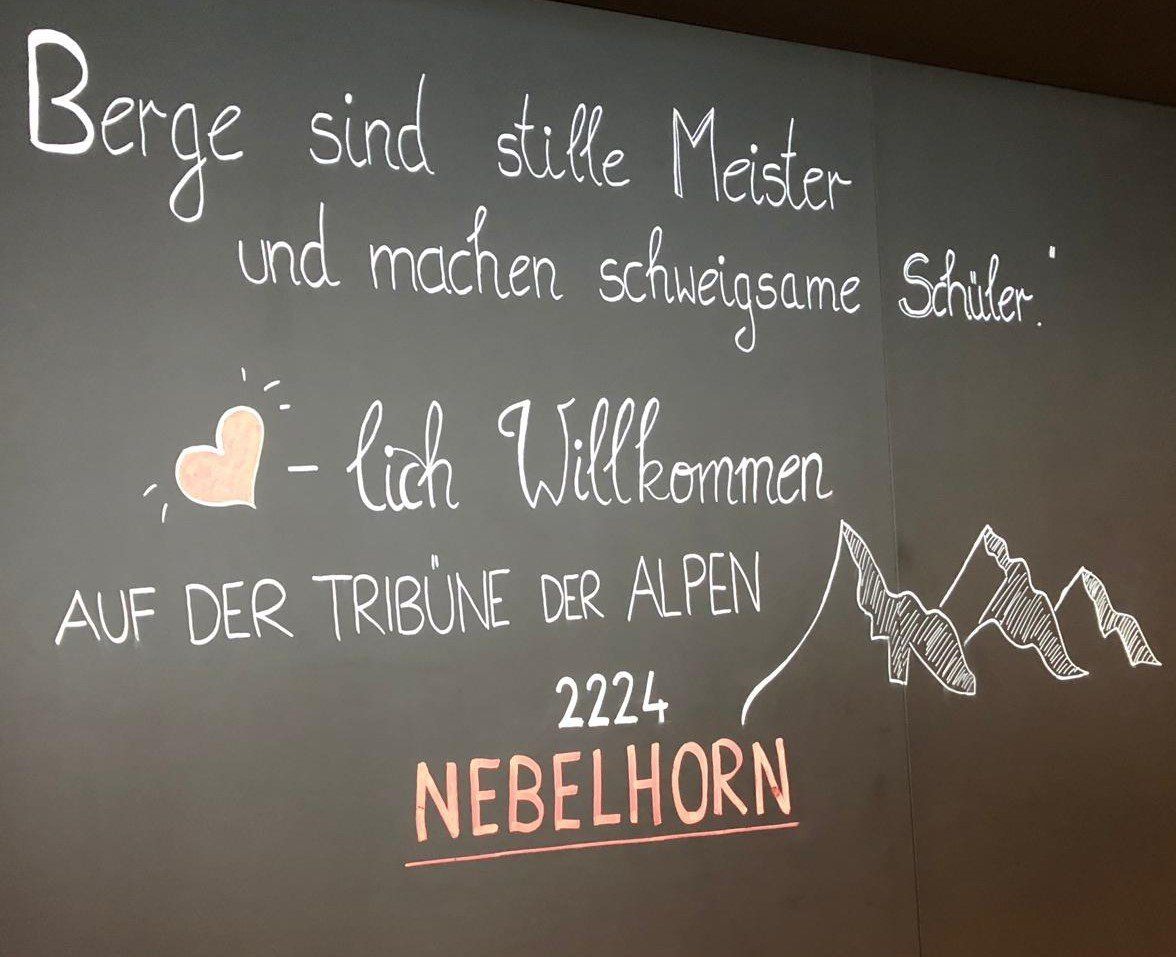 Berge sind stille Meister
und machen schweigsame Schüler."
- lich Willkommen
AUF DER TRIBÜNE DER ALPEN
2224
NEBELHORN